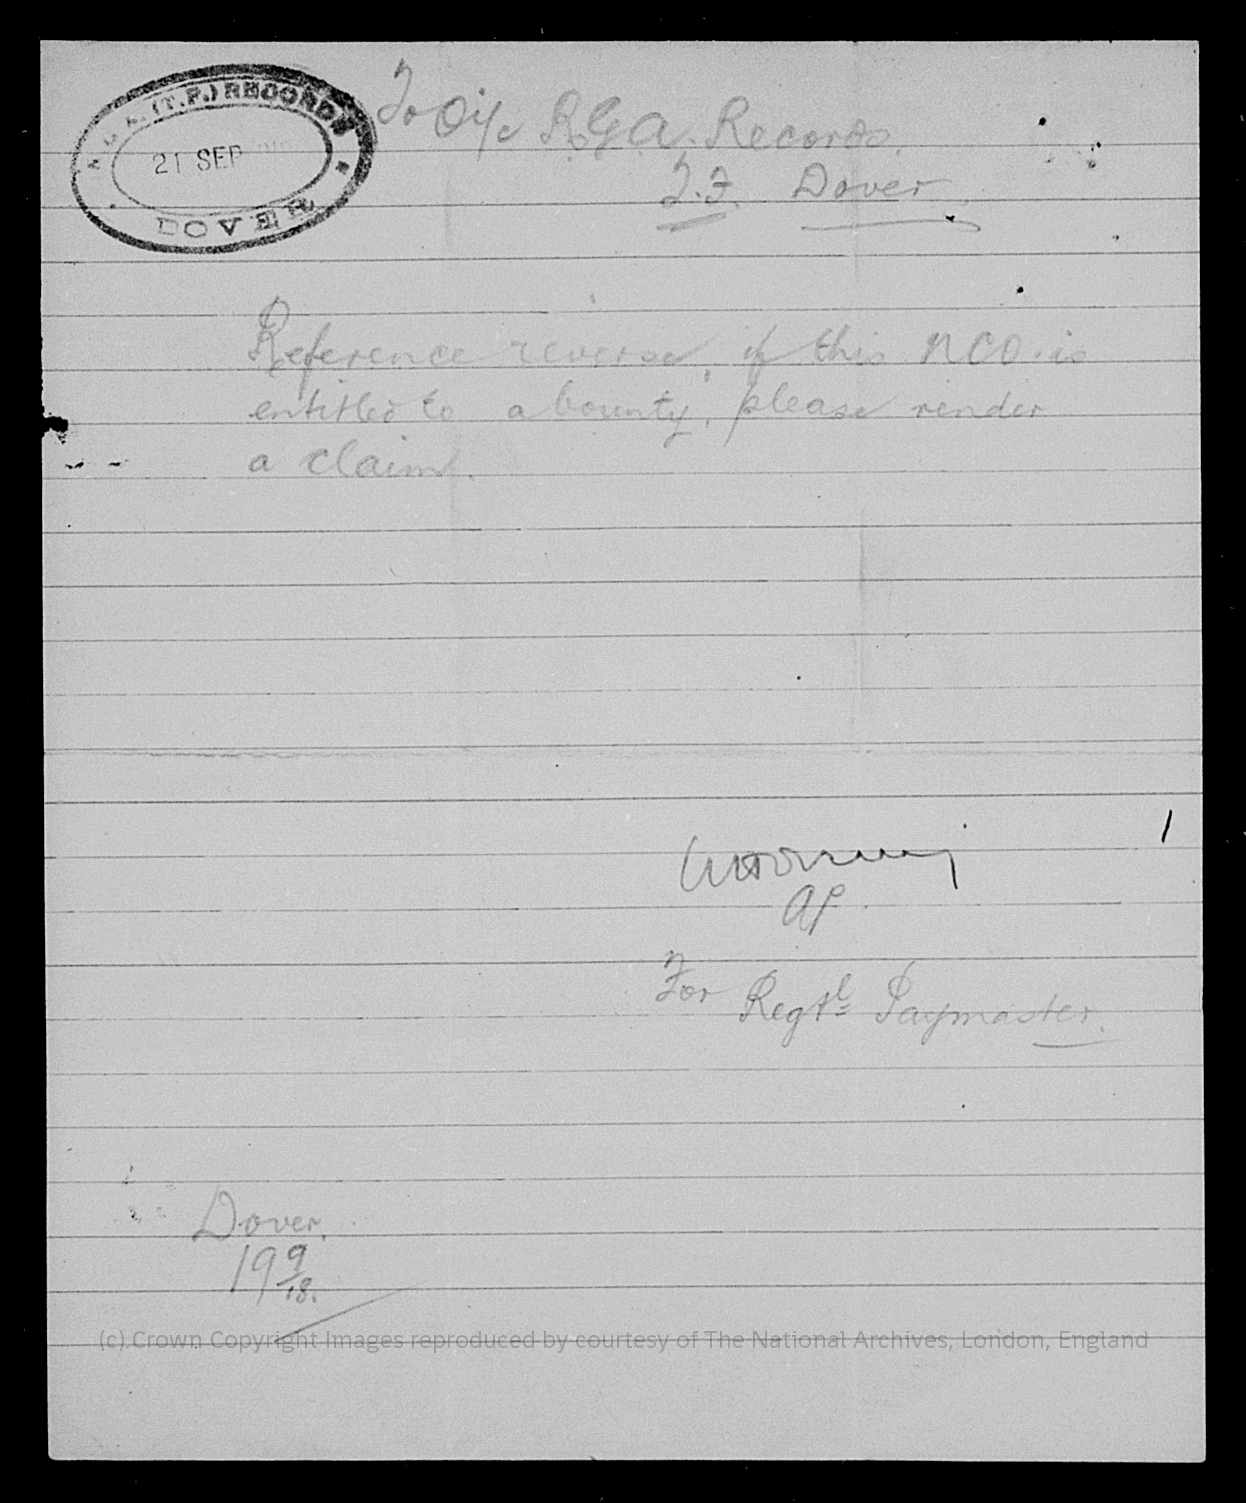 R.G.A. (T.F.) RECORDS
21 SEP
DOVER
To O i/c R.G.A. Records.
T.F. Dover
Reference reverse, if this NCO. is
entitled to a bounty, please render
a claim.
AP
For Regtl Paymaster.
Dover.
19 9/18.
(c) Crown Copyright Images reproduced by courtesy of The National Archives, London, England